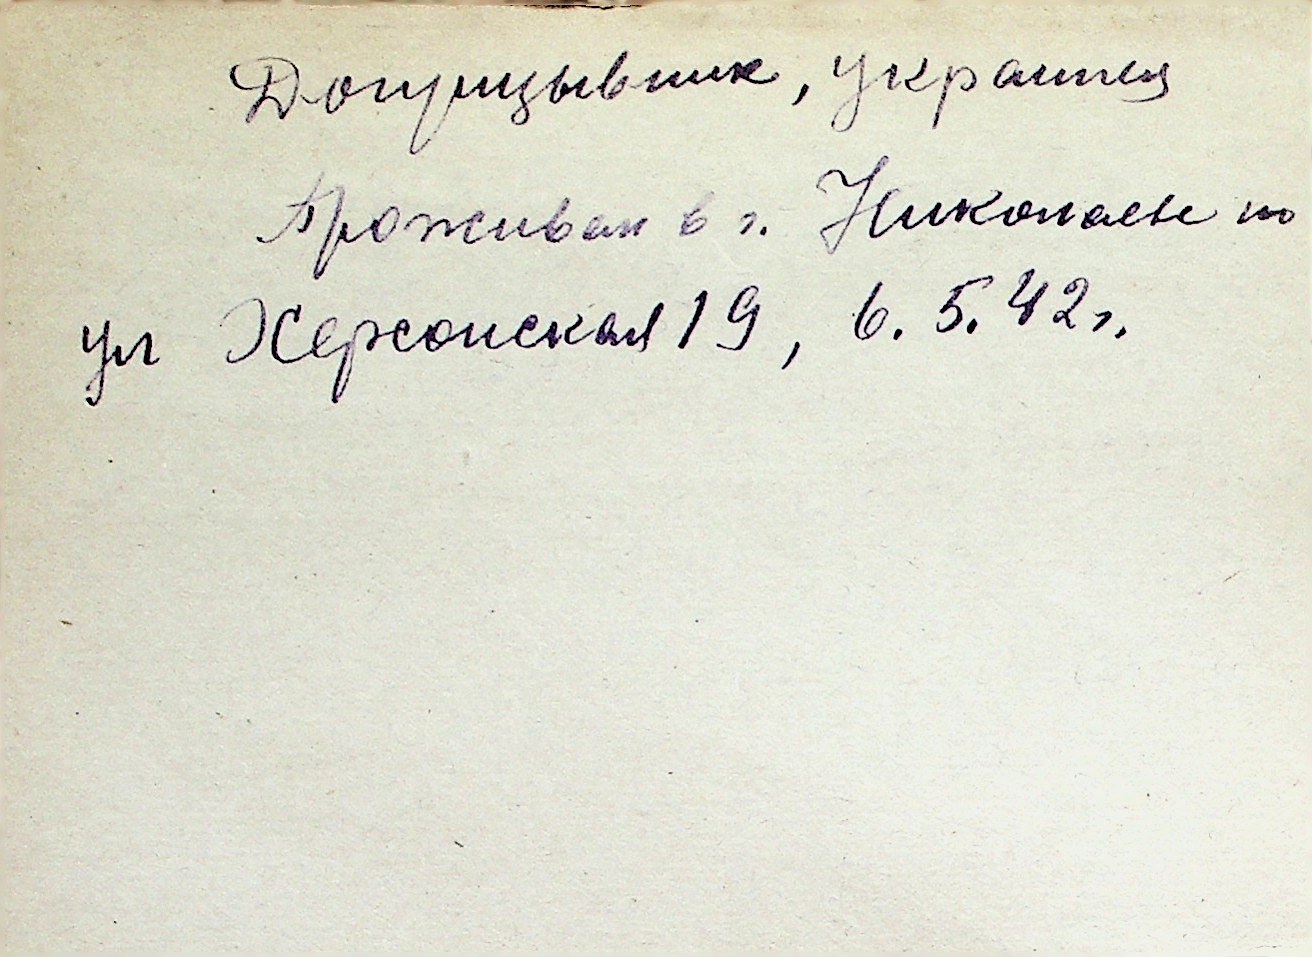 Допризывник, украинец
Проживал в г. Николаеве по
ул Херсонская 19, 6.5.42г.